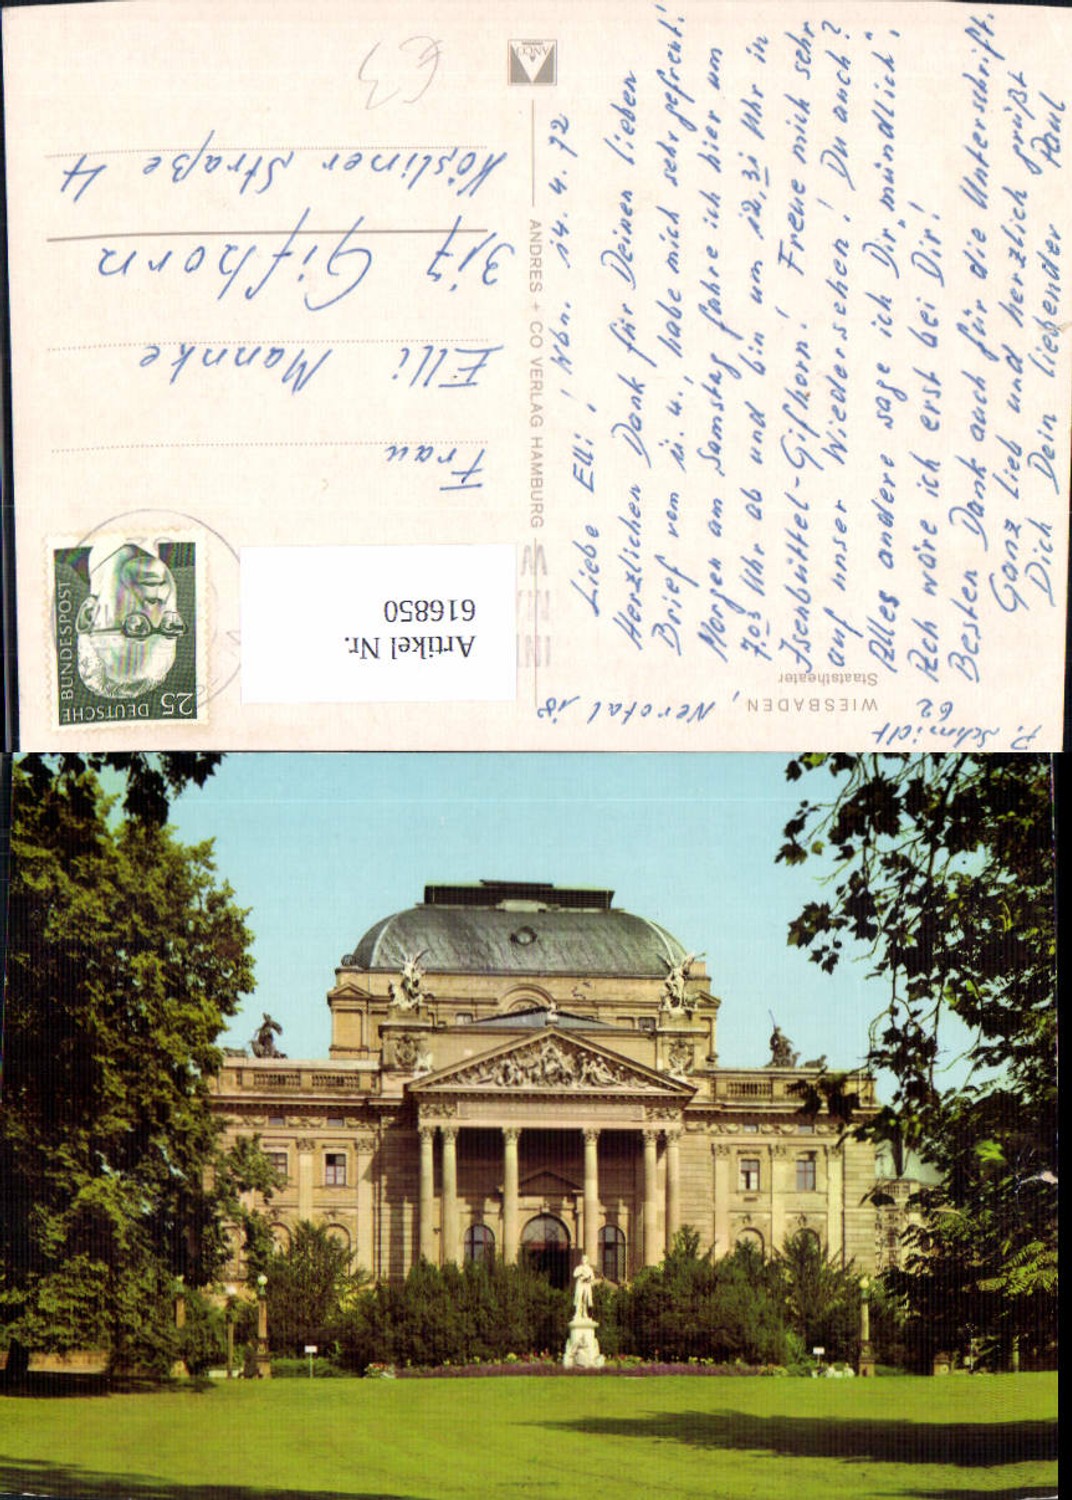 P. Schmidt
62
WIESBADEN, Nerotal 18
Staatstheater
Liebe Elli! Wbn. 14. 4. 72
Herzlichen Dank für Deinen lieben
Brief vom 11. 4.! habe mich sehr gefreut!
Morgen am Samstag fahre ich hier um
7.03 Uhr ab und bin um 12.31 Uhr in
Isenbüttel-Gifhorn! Freue mich sehr
auf unser Wiedersehen! Du auch?
Alles andere sage ich Dir „mündlich“,
Ach wäre ich erst bei Dir!
Besten Dank auch für die Unterschrift.
Ganz lieb und herzlich grüßt
Dich Dein liebender Paul
ANDRES + CO VERLAG HAMBURG
ANCO
DEUTSCHE
BUNDESPOST
25
Artikel Nr.
616850
Frau
Elli Mannke
317 Gifhorn
Kösliner Straße 4
€3